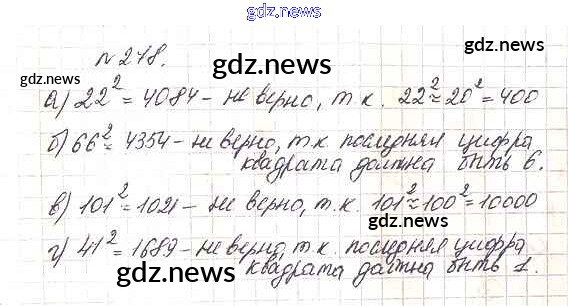 gdz.news
№ 218.
gdz.news
gdz.news
gdz.news
а) 22² = 4084 - не верно, т.к. 22² ≈ 20² = 400
б) 66² = 4354 - не верно, т.к последняя цифра
квадрата должна быть 6.
в) 101² = 1021 - не верно, т.к. 101² ≈ 100² = 10000
gdz.news
г) 41² = 1689 - не верно, т.к. последняя цифра
квадрата должна быть 1.
gdz.news
gdz.news